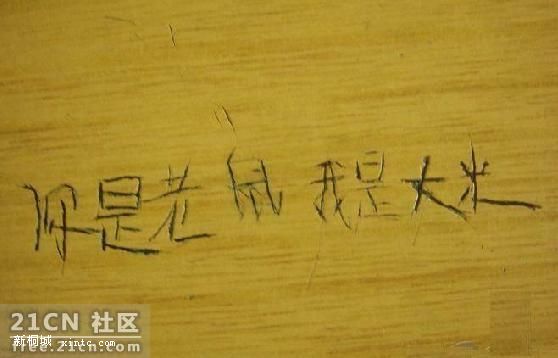 你是老鼠我是大米
21CN 社区
新桐城 xintc.com
free.21cn.com